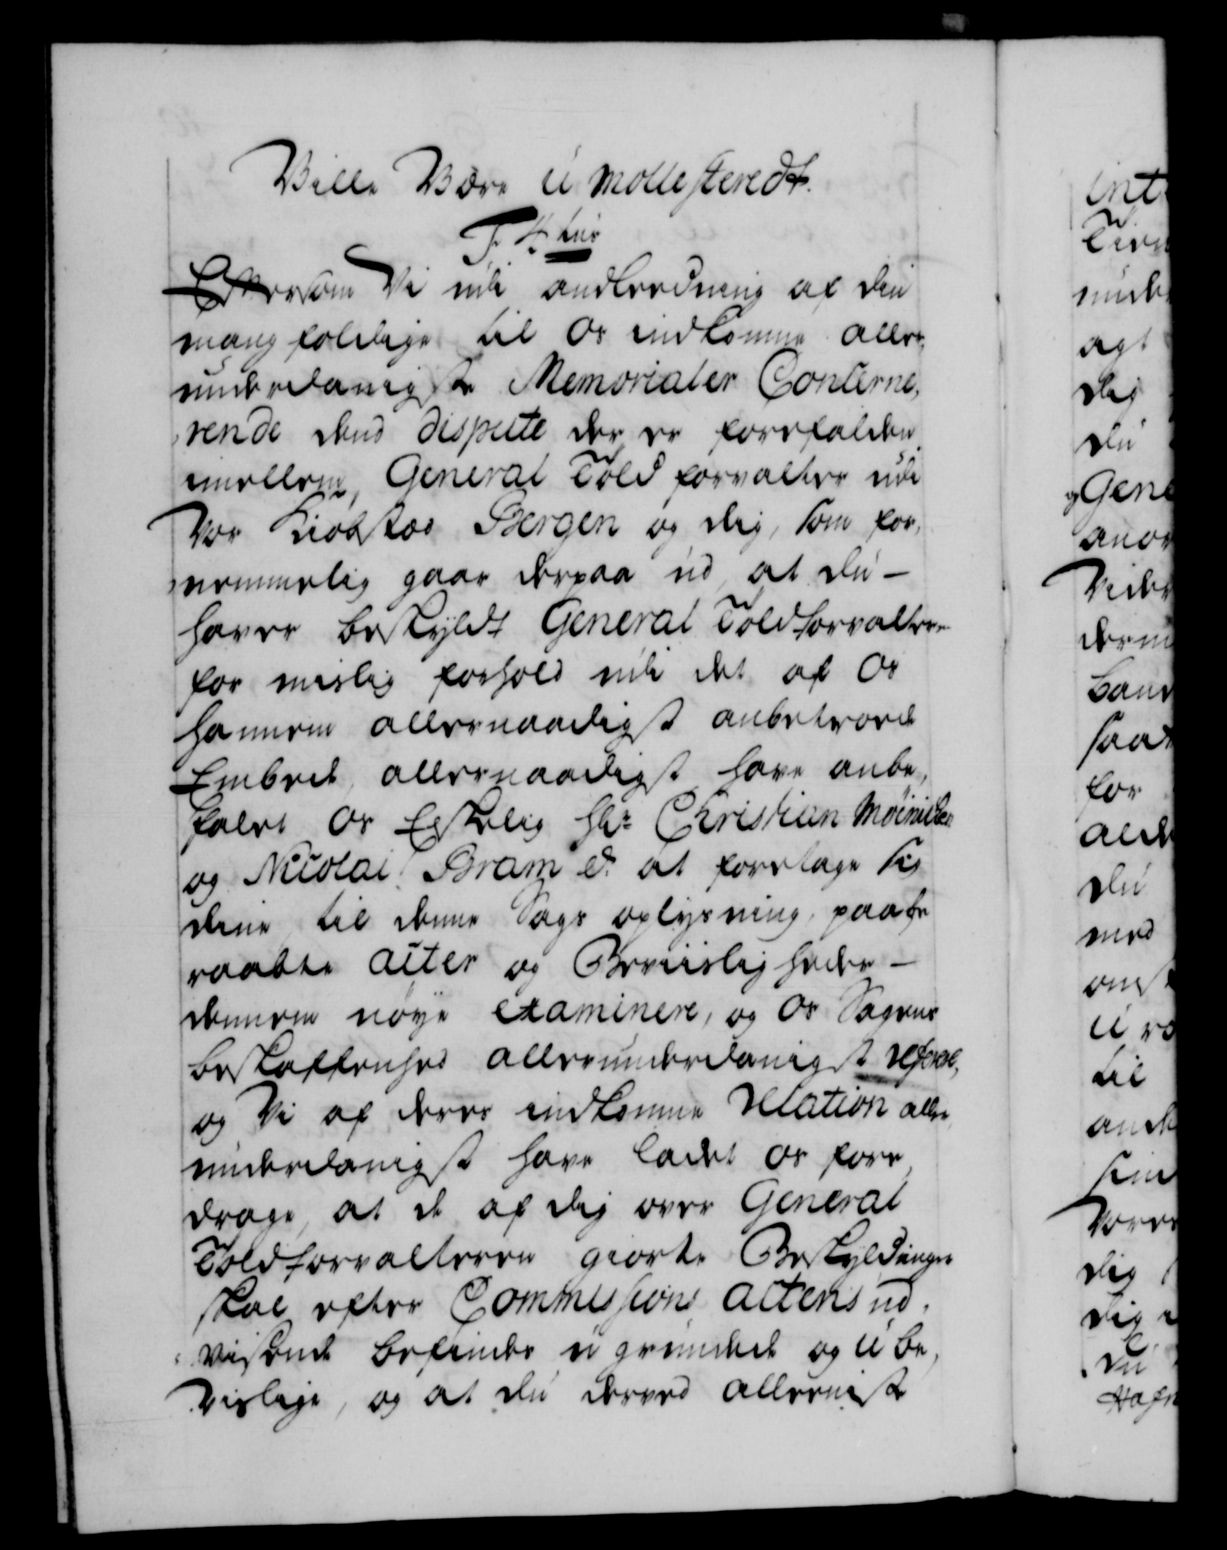 Ville Være u mollesteredt.
F. 4tus
Eftersom Vi udi andleedning af din
mangfoldige til Os indkomne aller,
underdanigste Memorialer Concerne,
rende dend dispute der er forefalden
imellem, General Told forvalter udi
Vor Kiøbstad Bergen og dig, som for,
nemmelig gaar derpaa ud, at du
haver beskyldt General Toldforvalteren
for mislig forhold udi det af Os
hannem allernaadigst anbetroede
Embede, allernaadigst have anbe,
falet Os Elskelig Hr: Christian Møinichen
og Nicolai Bram &: at foretage sig
dine til denne Sags oplysning paabe
raabte acter og Beviisligheder
dennem nøye examinere, og Os Sagens
beskaffenhed allerunderdanigst referere,
og Vi af deres indkomne relation aller
underdanigst have ladet Os fore,
drage, at de af dig over General
Toldforvalteren giorte Beskyldninger
skal efter Commissions actens ud,
visende befindes u grundede og u be,
vislige, og at du derved allermeste